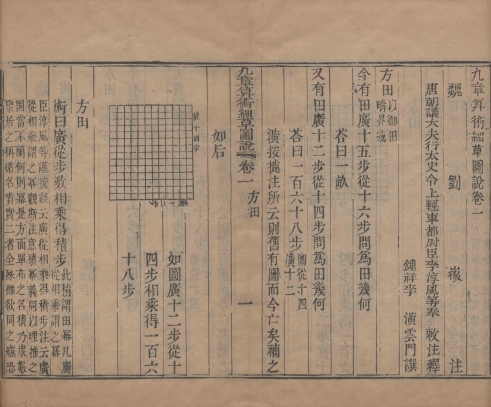 九章算術細草圖說卷一
魏 劉 徽 注
唐朝議大夫行太史令上輕車都尉臣李淳風等奉 敕注釋
鍾祥李 潢雲門譔
方田以御田疇界域
今有田廣十五步從十六步問爲田幾何
荅曰一畝
又有田廣十二步從十四步問爲田幾何
荅曰一百六十八步圖從十四廣十二
潢按據注所云則舊有圖而今亡矣補之
九章算術細草圖說 卷一 方田 一
如后
從十四步
如圖廣十二步從十
四步相乘得一百六
十八步
方田
術曰廣從步數相乘得積步此積謂田冪凡廣從相乘謂之冪
臣淳風等謹按經云廣從相乘得積步注云廣
從相乘謂之冪觀斯注意積冪義同以理推之
固當不爾何則冪是方面單布之名積乃衆數
聚居之稱循名責實二者全殊雖欲同之竊恐